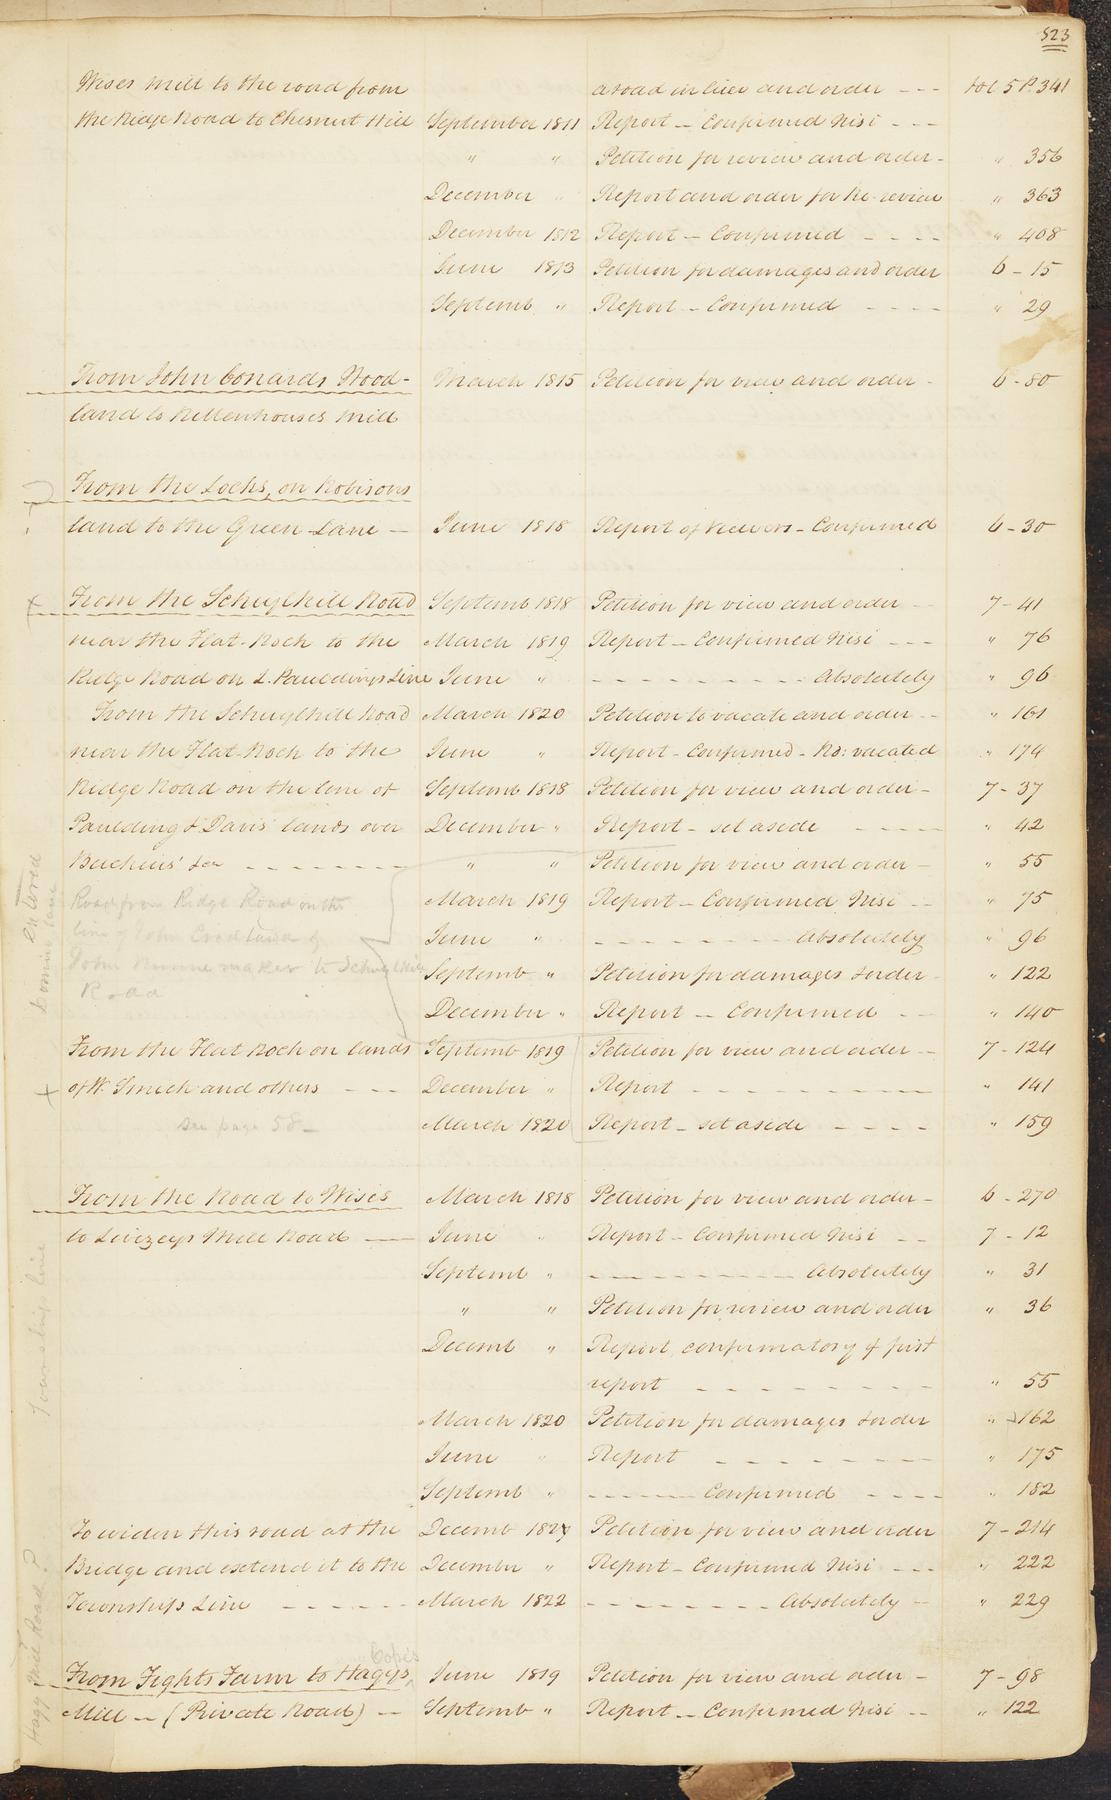 523
Wises Mill to the road from a road in lieu and order - - - Vol 5 P. 341
the Ridge Road to Chesnut Hill September 1811 Report - Confirmed Nisi - - -
" " Petition for review and order - " 356
December " Report and order for Re-review " 363
December 1812 Report - Confirmed - - - - " 408
June 1813 Petition for damages and order 6 - 15
Septemb " Report - Confirmed - - - - " 29
From John Conards Wood- March 1815 Petition for view and order - 6 - 80
land to Rittenhouses Mill
From the Locks, on Robisons
land to the Green Lane - June 1818 Report of Viewers - Confirmed 6 - 30
From the Schuylkill Road Septemb 1818 Petition for view and order - - 7 - 41
near the Flat-Rock to the March 1819 Report - Confirmed Nisi - - - " 76
Ridge Road on L. Pauldings Line June " - - - - - - - - - Absolutely " 96
From the Schuylkill Road March 1820 Petition to vacate and order - - " 161
near the Flat Rock to the June " Report - Confirmed - Rd: vacated " 174
Ridge Road on the line of Septemb 1818 Petition for view and order - 7 - 37
Paulding & Davis' lands over December " Report - set aside - - - - - " 42
- - - - - - - " " Petition for view and order - " 55
Road from Ridge Road on the March 1819 Report - Confirmed Nisi - - " 75
line of John June " - - - - - - - - - Absolutely " 96
John to Schuylkill Septemb " Petition for damages & order " 122
Road December " Report - Confirmed - - " 140
From the Flat Rock on lands Septemb 1819 Petition for view and order - - 7 - 124
of W. Smick and others - - - December " Report - - - - - - - - - " 141
see page 58 - March 1820 Report - set aside - - - - " 159
From the Road to Wises March 1818 Petition for view and order - 6 - 270
to Livezeys Mill Road - June " Report - Confirmed Nisi - - 7 - 12
Septemb " - - - - - - - - - Absolutely " 31
" " Petition for review and order " 36
Decemb " Report, confirmatory of first
report - - - - - - - - - " 55
March 1820 Petition for damages & order " 162
June " Report - - - - - - - - " 175
Septemb " - - - - - Confirmed - - - - " 182
To widen this road at the Decemb Petition for view and order 7 - 214
Bridge and extend it to the December " Report - Confirmed Nisi - - - " 222
Townships Line - - - - - - March 1822 - - - - - - - - Absolutely - " 229
Cope's
From Fights Farm to Hagys, June 1819 Petition for view and order - 7 - 98
Mill - (Private Road) - Septemb " Report - Confirmed Nisi - - " 122
Entered
Township line
Hagy Mill Road?